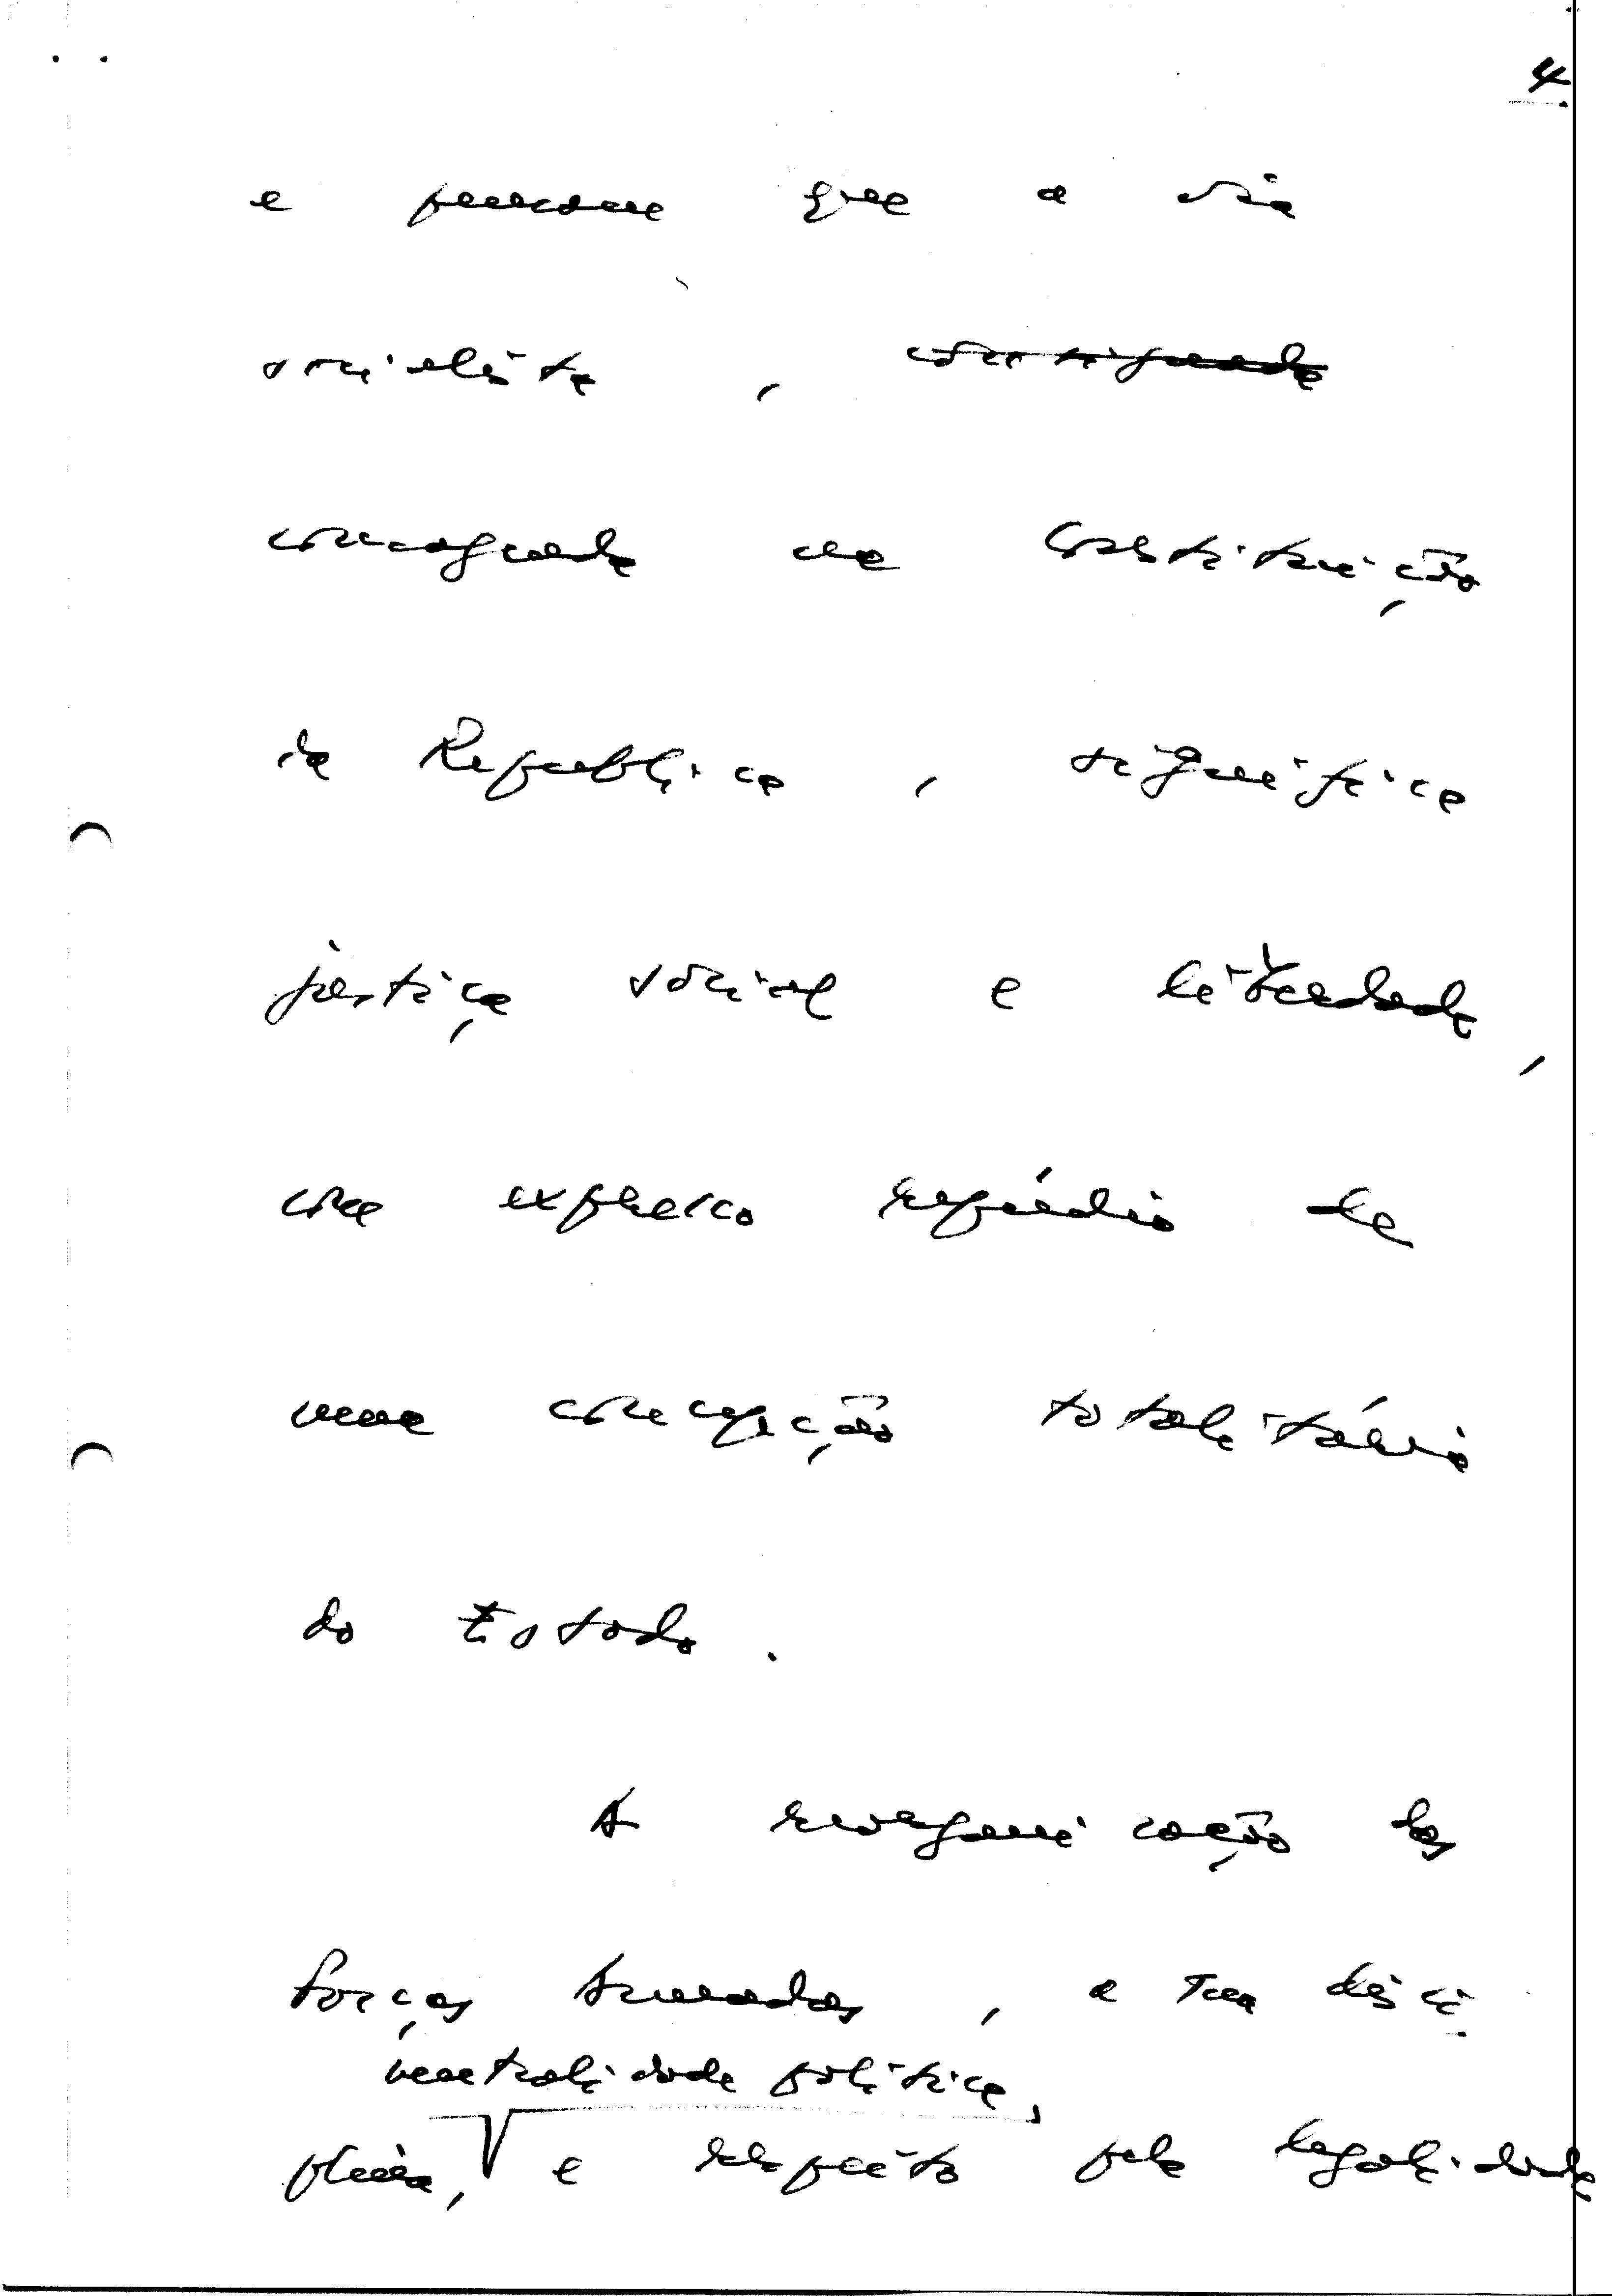 4
e pensam que a via
socialista,
consagrada na Constituição
da Republica, significa
justiça social e liberdade,
com expresso repúdio de
uma concepção totalitária
do Estado.
A reorganização das
Forças Armadas, a sua disci
neutralidade política,
plina, e respeito pela legalidade